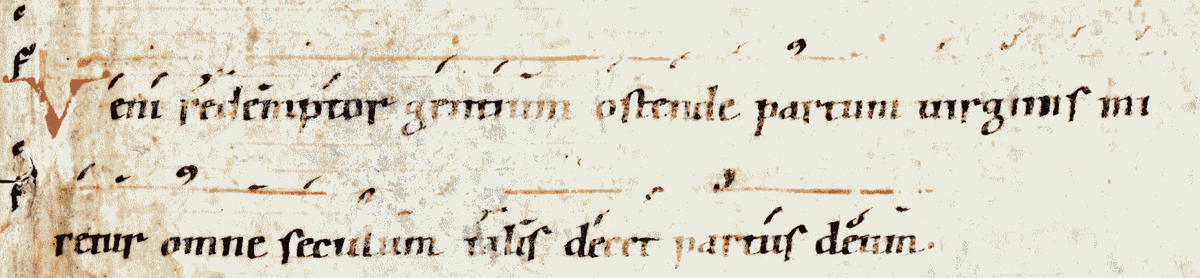 Veni redemptor gentium ostende partum uirginis mi
retur omne seculum talis decet partus deum.